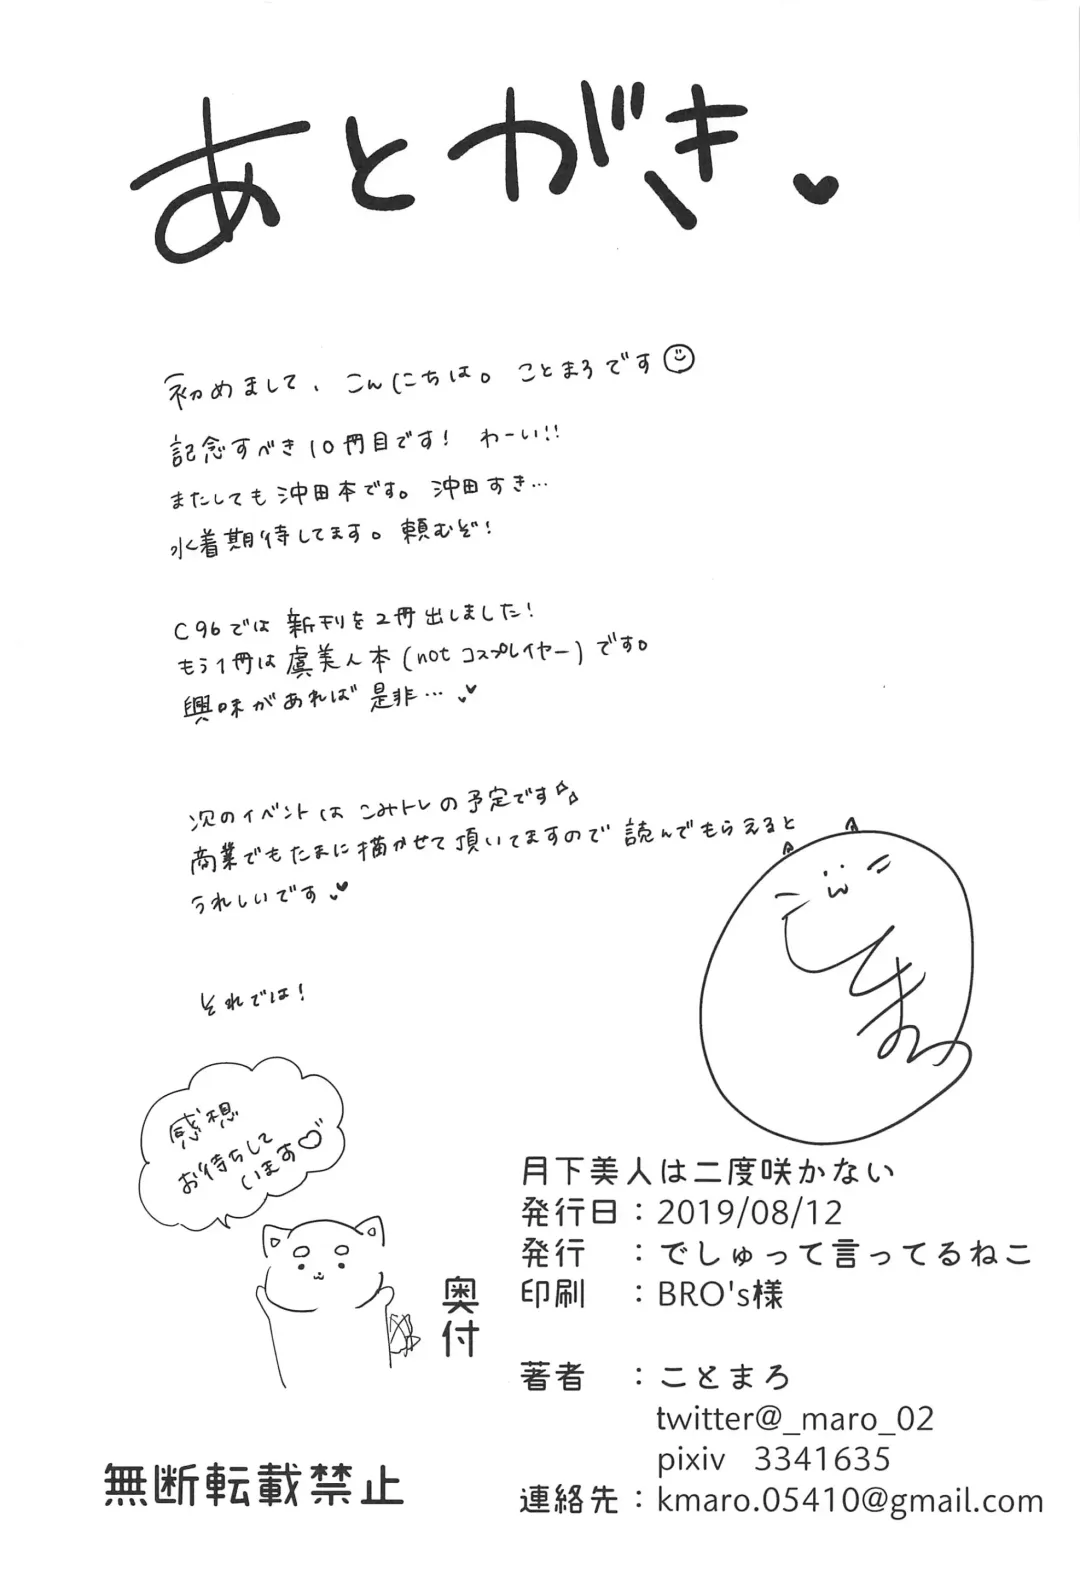 あとがき♥
初めまして、こんにちは。ことまろです☺
記念すべき10冊目です! わーい!!
またしても沖田本です。沖田すき…
水着期待してます。頼むぞ!
C96では新刊を2冊出しました!
もう1冊は虞美人本(notコスプレイヤー)です。
興味があれば是非…♥
次のイベントはこみトレの予定です☆
商業でもたまに描かせて頂いてますので読んでもらえると
うれしいです♥
それでは!
ことまろ
感想
お待ちして
います♡
奥付
月下美人は二度咲かない
発行日:2019/08/12
発行 :でしゅって言ってるねこ
印刷 :BRO's様
著者 :ことまろ
twitter@_maro_02
pixiv 3341635
連絡先:kmaro.05410@gmail.com
無断転載禁止